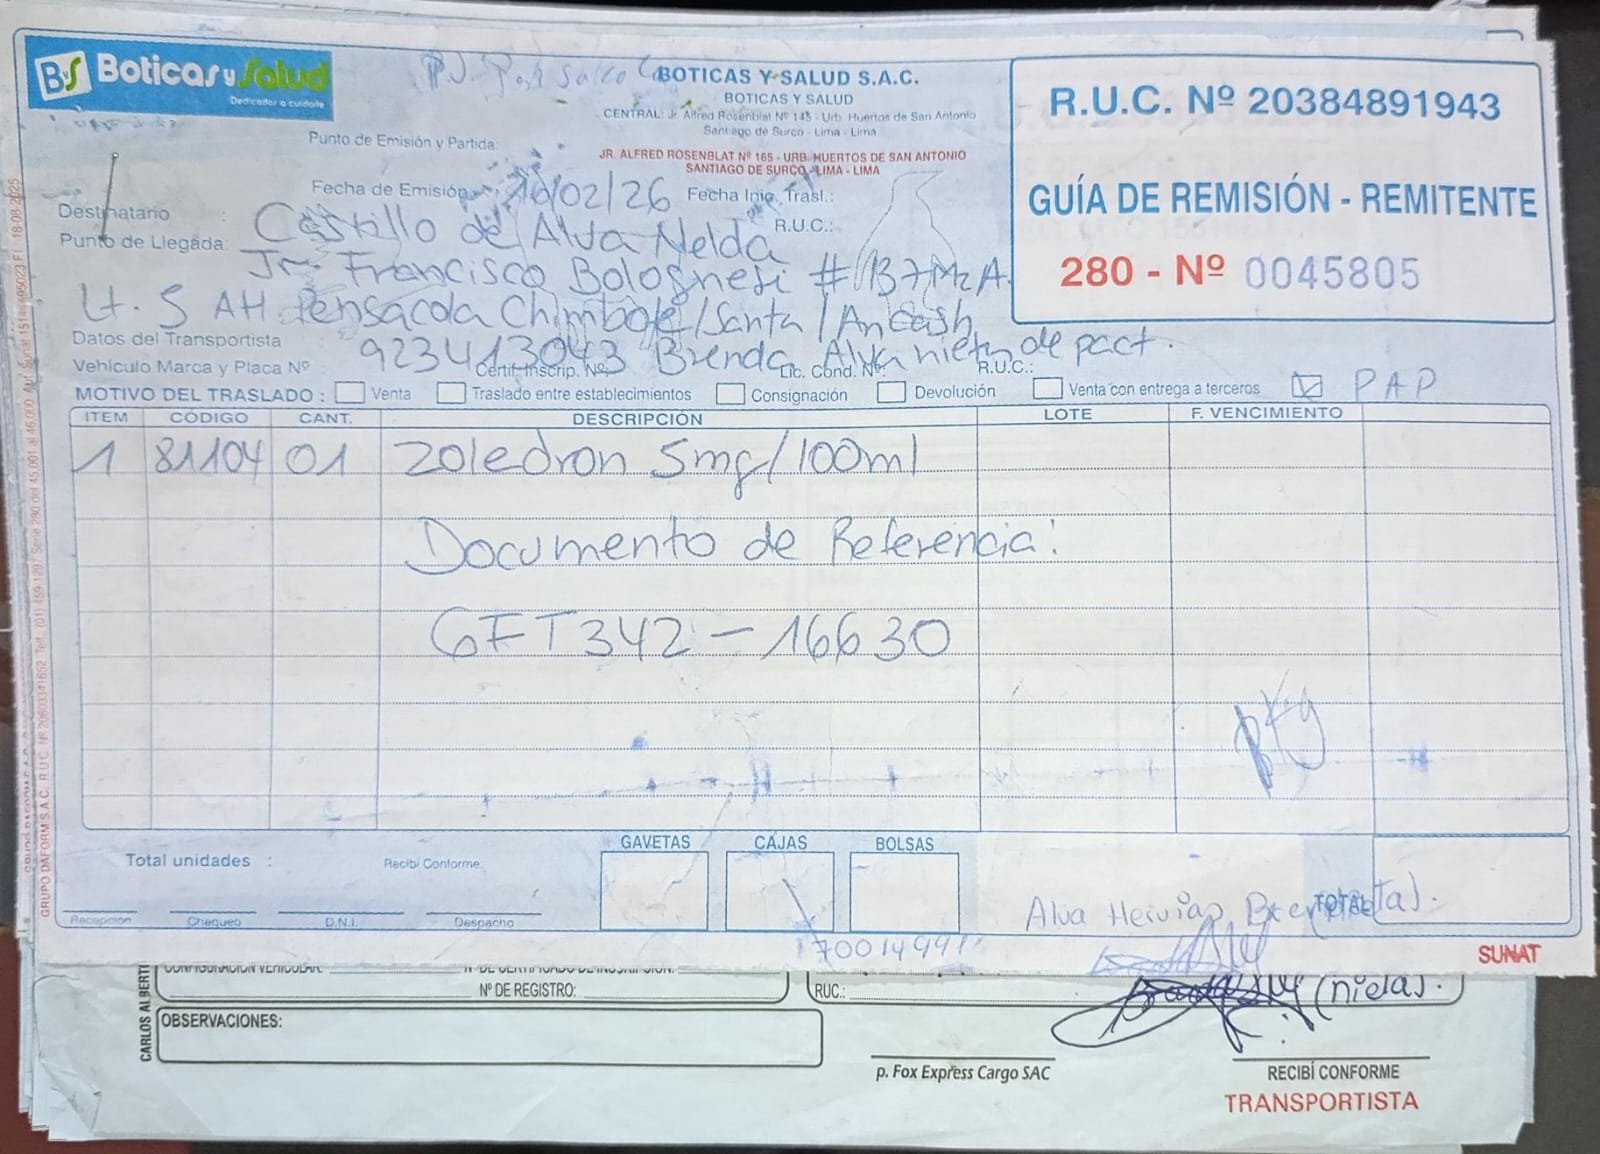 BS Boticas y Salud
Dedicados a cuidarte
BOTICAS Y SALUD S.A.C.
BOTICAS Y SALUD
CENTRAL: Jr. Alfred Rosenblat Nº 145 - Urb. Huertos de San Antonio
Santiago de Surco - Lima - Lima
Punto de Emisión y Partida:
JR. ALFRED ROSENBLAT Nº 165 - URB. HUERTOS DE SAN ANTONIO
SANTIAGO DE SURCO - LIMA - LIMA
R.U.C. Nº 20384891943
GUÍA DE REMISIÓN - REMITENTE
280 - Nº 0045805
Fecha de Emisión 10/02/26 Fecha Inic. Trasl.:
Destinatario : Castillo de Alva Nelda R.U.C.:
Punto de Llegada: Jr Francisco Bolognesi # 137 Mz A
Lt. 5 AH Pensacola Chimbote/Santa/Ancash
Datos del Transportista 923413043 Brenda Alva nieta de pact.
Vehículo Marca y Placa Nº Certif. Inscrip. Nº Lic. Cond. Nº R.U.C.:
MOTIVO DEL TRASLADO : Venta Traslado entre establecimientos Consignación Devolución Venta con entrega a terceros PAP
ITEM CÓDIGO CANT. DESCRIPCIÓN LOTE F. VENCIMIENTO
1 81104 01 Zoledron 5mg/100ml
Documento de Referencia:
GFT342-16630
GAVETAS CAJAS BOLSAS
Total unidades : Recibí Conforme
TOTAL
Recepción Chequeo D.N.I. Despacho
Alva Hervias
70014991
SUNAT
CONFIGURACIÓN VEHICULAR: Nº DE CERTIFICADO DE INSCRIPCIÓN:
Nº DE REGISTRO: RUC.: (nieta).
OBSERVACIONES:
p. Fox Express Cargo SAC
RECIBÍ CONFORME
TRANSPORTISTA
CARLOS ALBERT